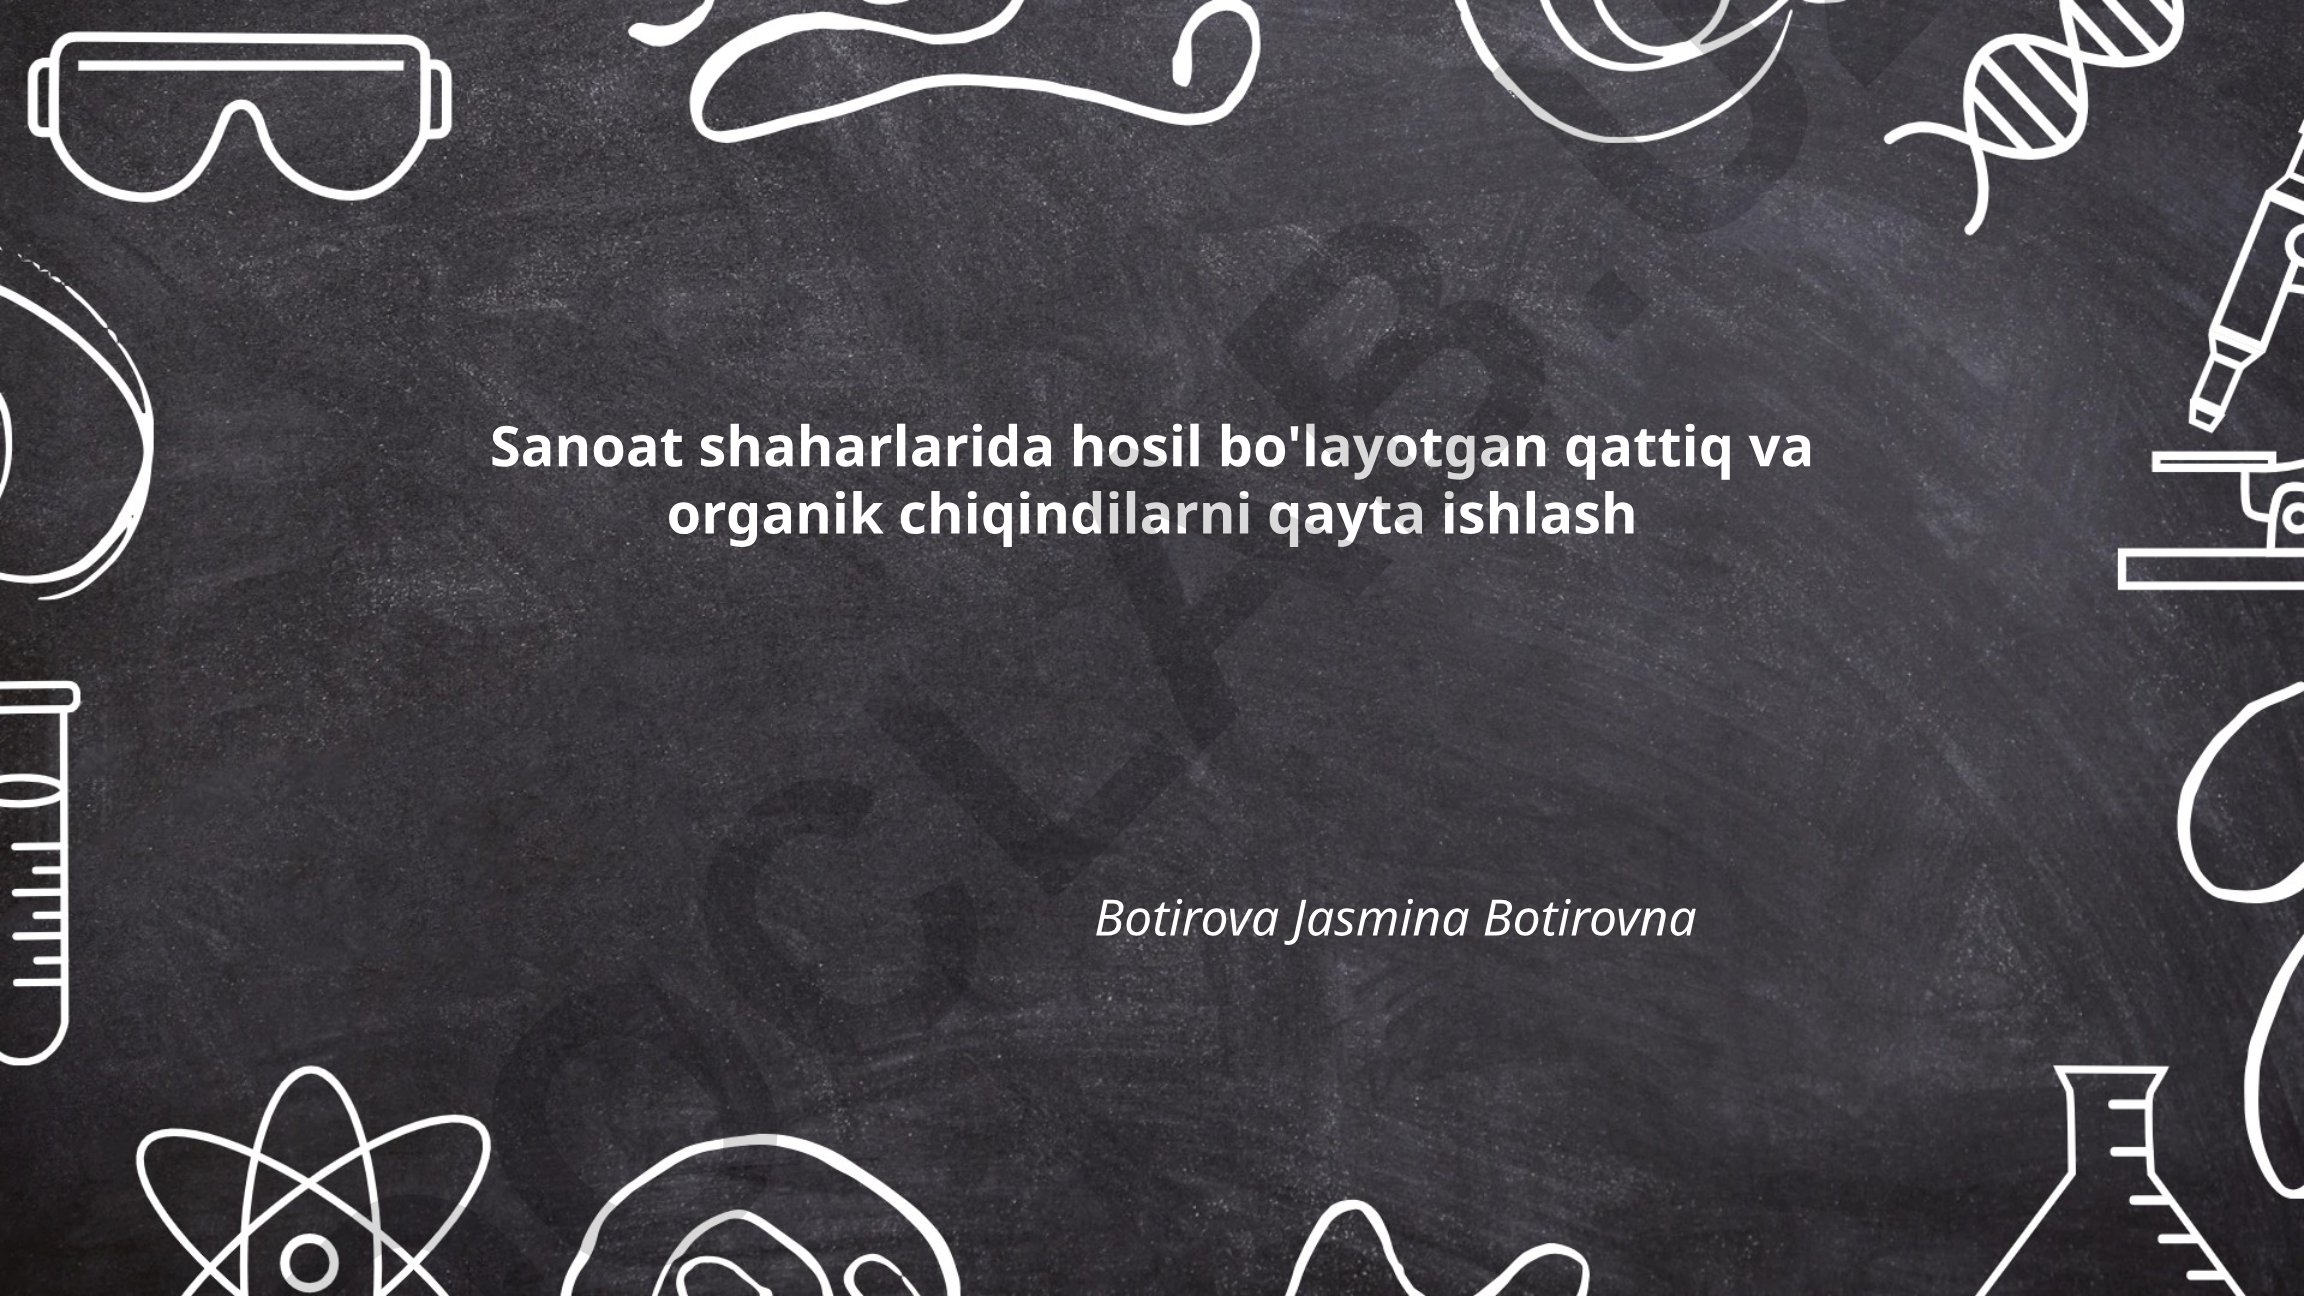 Sanoat shaharlarida hosil bo'layotgan qattiq va
organik chiqindilarni qayta ishlash
Botirova Jasmina Botirovna